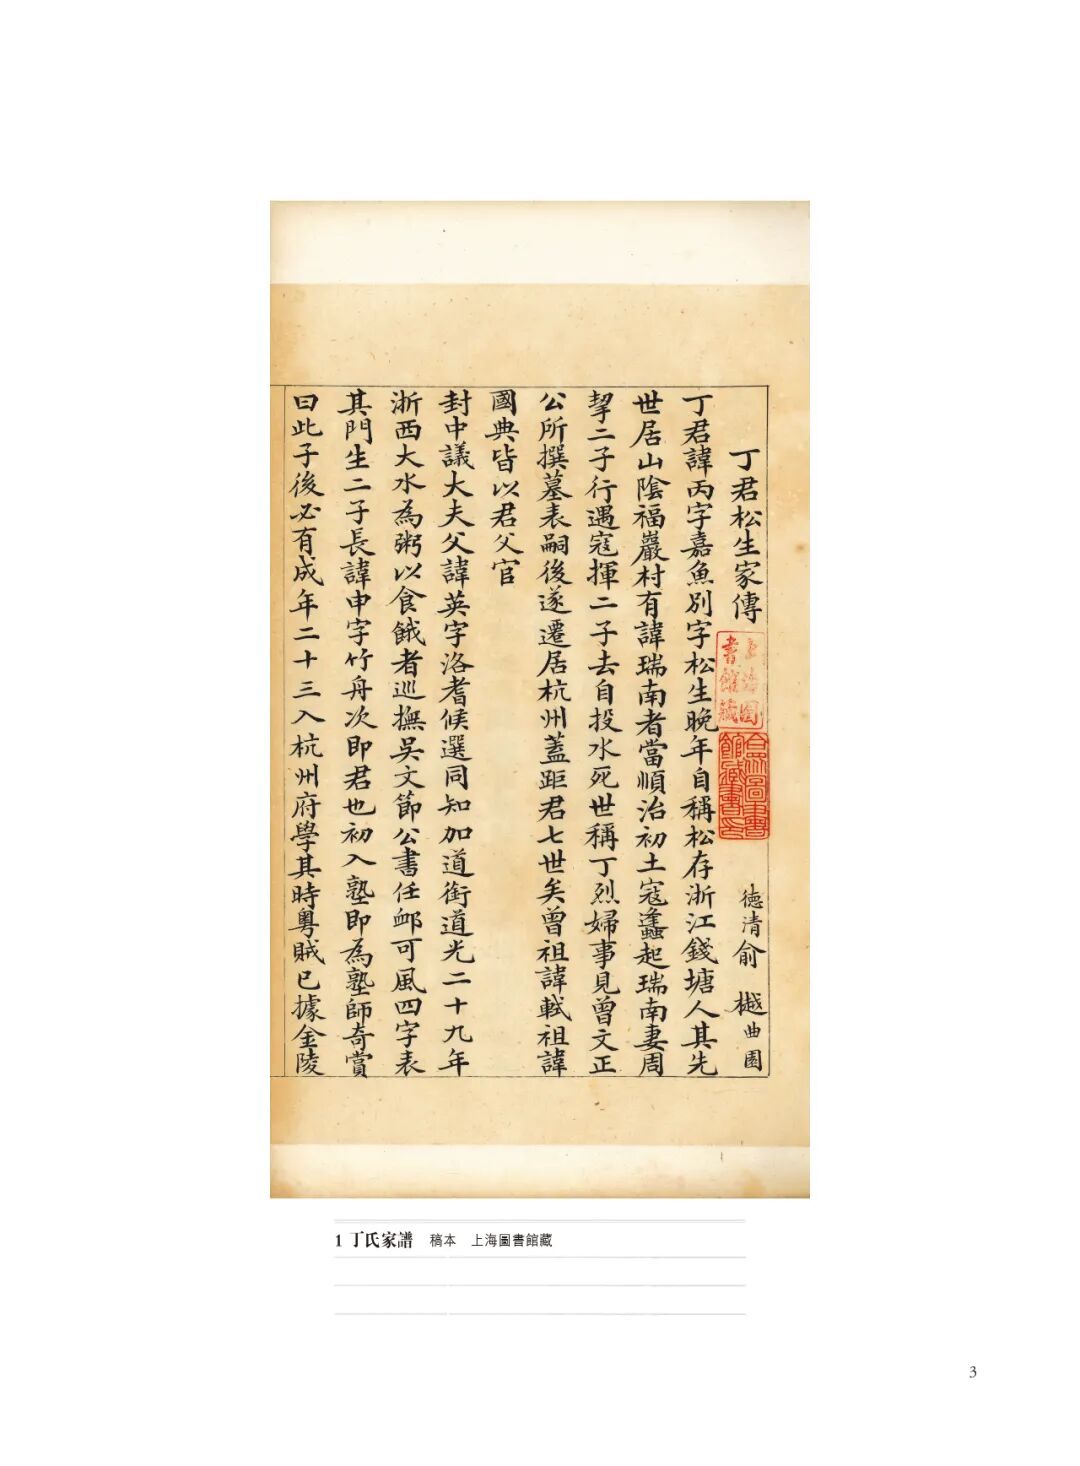 丁君松生家傳
德清俞樾曲園
丁君諱丙字嘉魚別字松生晚年自稱松存浙江錢塘人其先
世居山陰福巖村有諱瑞南者當順治初土寇蠭起瑞南妻周
挈二子行遇寇揮二子去自投水死世稱丁烈婦事見曾文正
公所撰墓表嗣後遂遷居杭州蓋距君七世矣曾祖諱軾祖諱
國典皆以君父官
封中議大夫父諱英字洛耆候選同知加道銜道光二十九年
浙西大水為粥以食餓者巡撫吳文節公書任卹可風四字表
其門生二子長諱申字竹舟次即君也初入塾即為塾師奇賞
曰此子後必有成年二十三入杭州府學其時粵賊已據金陵
上海圖
書館藏
合眾圖書
館藏書印
1 丁氏家譜 稿本 上海圖書館藏
3